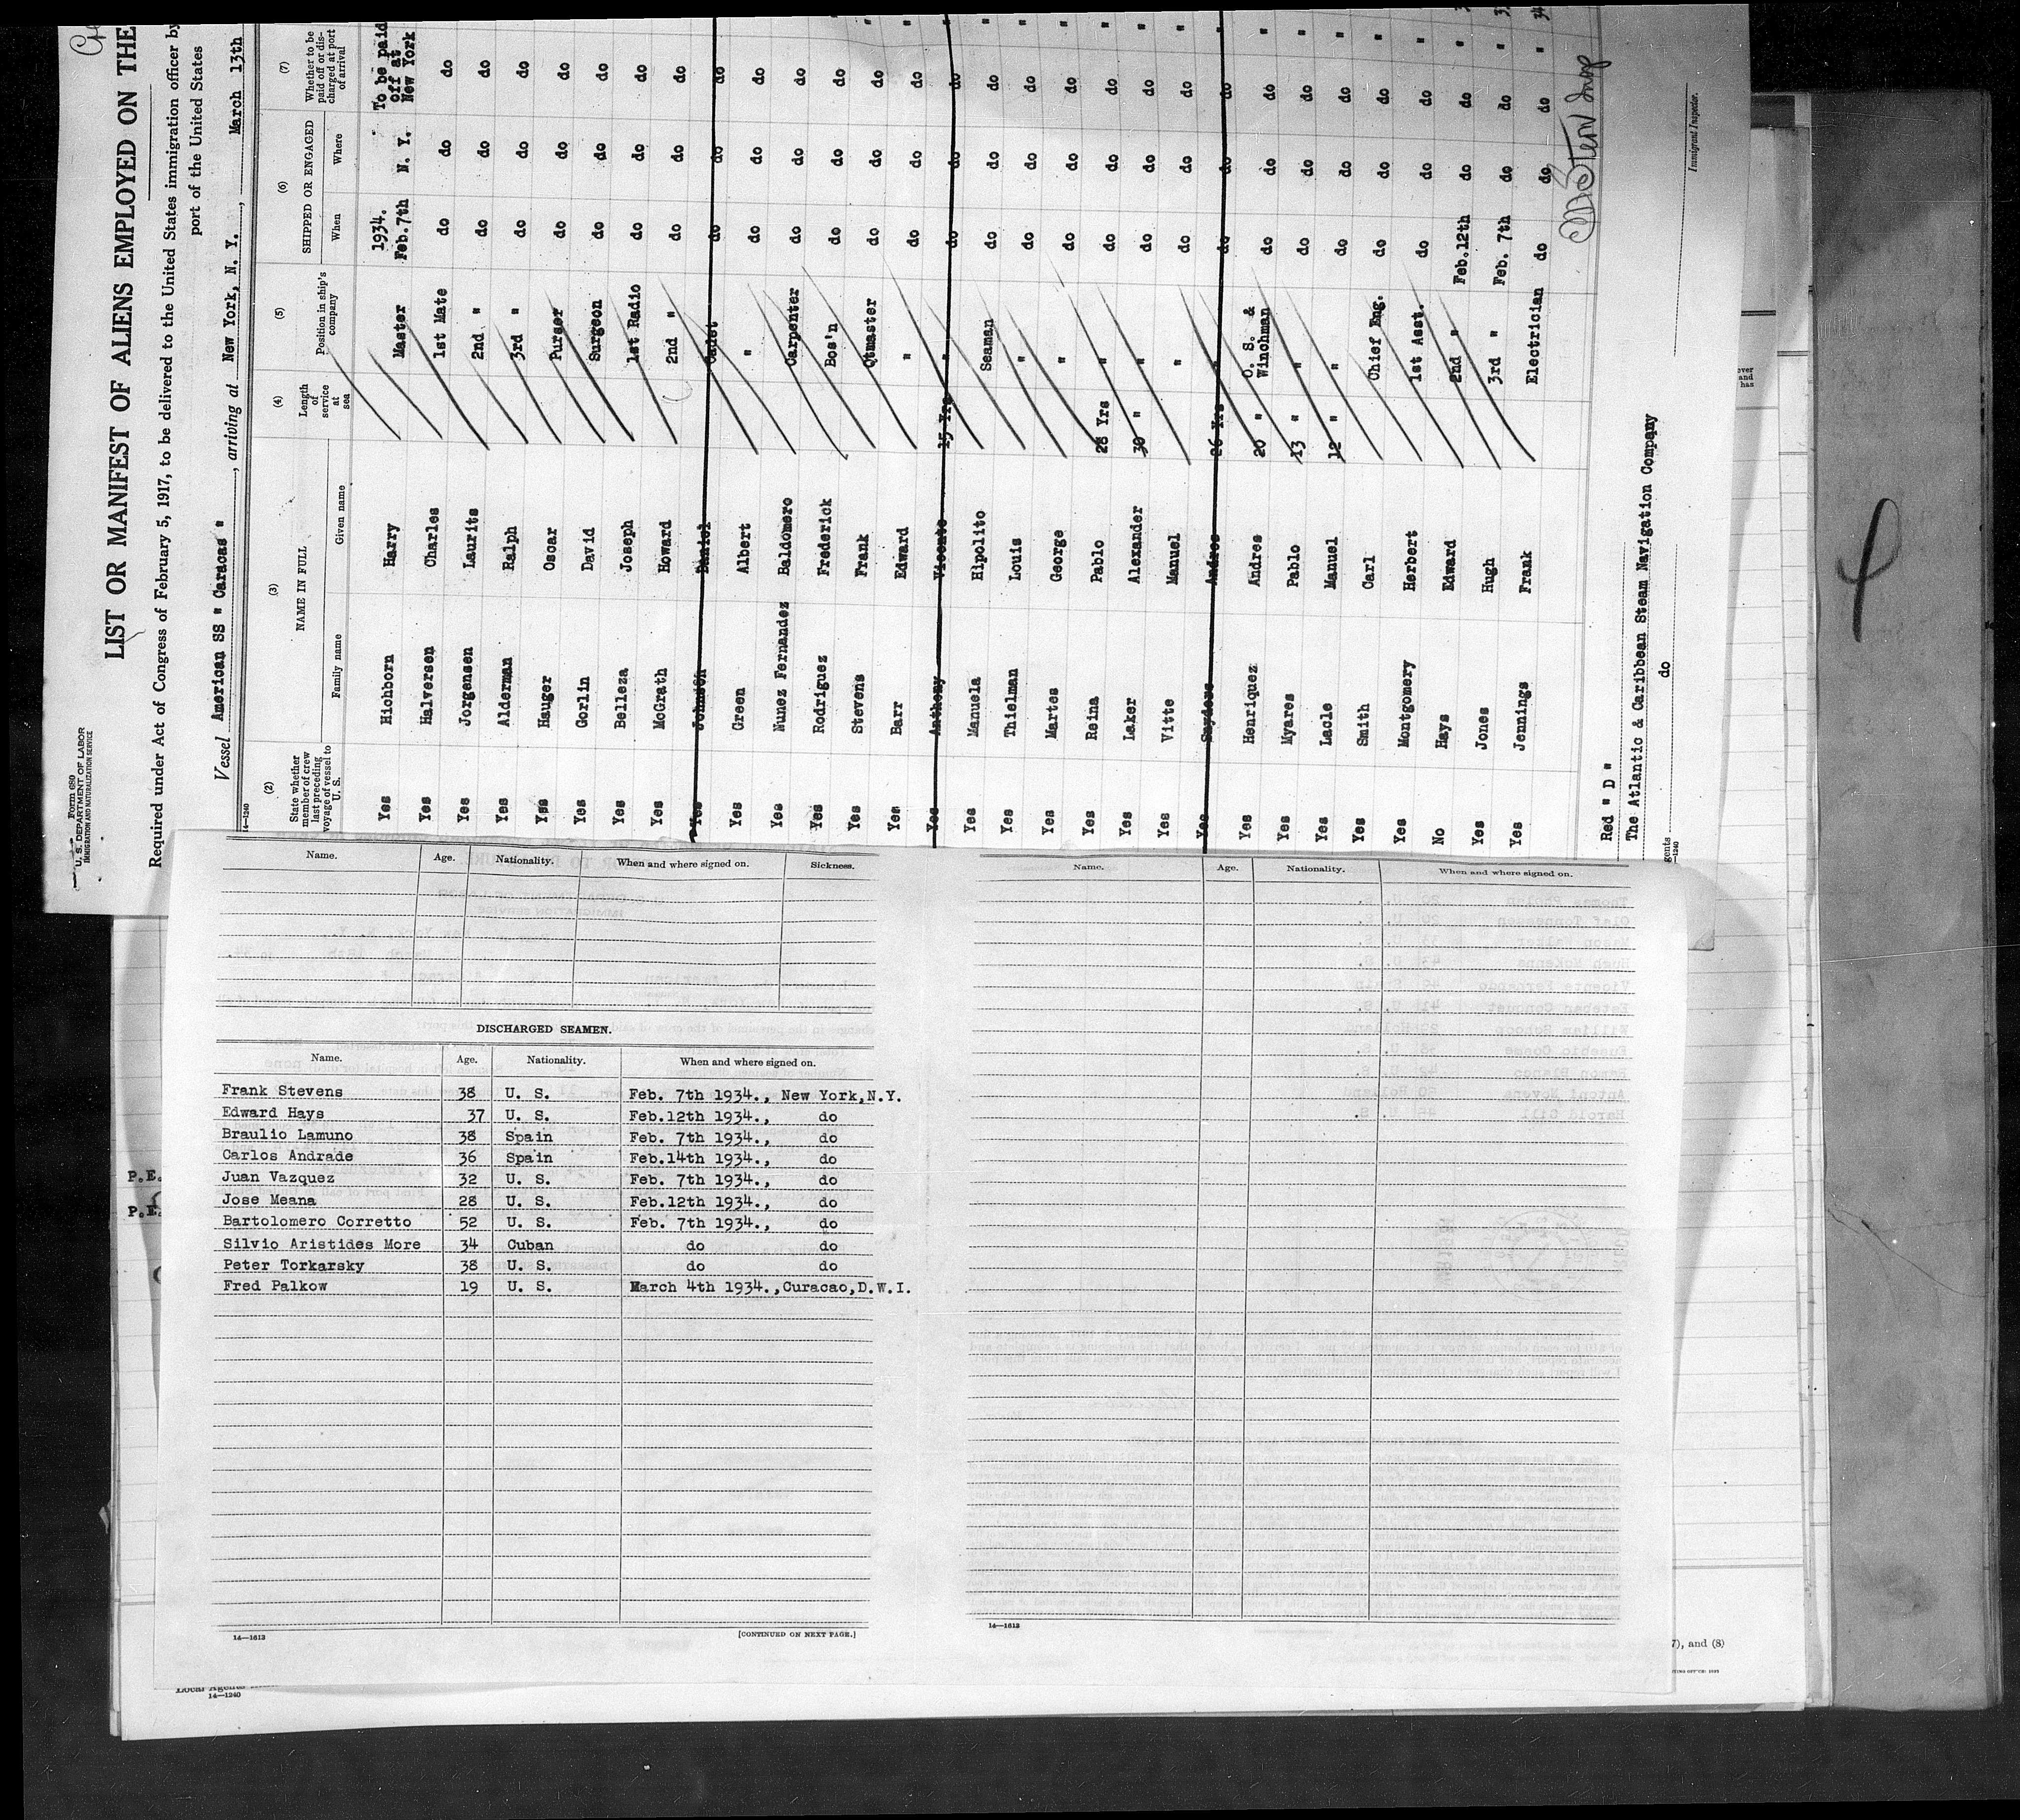 Form 680
U. S. DEPARTMENT OF LABOR
IMMIGRATION AND NATURALIZATION SERVICE
LIST OR MANIFEST OF ALIENS EMPLOYED ON THE
Required under Act of Congress of February 5, 1917, to be delivered to the United States immigration officer by
port of the United States
Vessel American SS " Caracas " , arriving at New York, N. Y. , March 13th
14—1240
(2) (3) (4) (5) (6) (7)
State whether member of crew last preceding voyage of vessel to U. S.
NAME IN FULL
Family name Given name
Length of service at sea
Position in ship's company
SHIPPED OR ENGAGED
When Where
Whether to be paid off or discharged at port of arrival
Yes Hichborn Harry Master 1934. Feb.7th N. Y. To be paid off at New York
Yes Halversen Charles 1st Mate do do do
Yes Jorgensen Laurits 2nd " do do do
Yes Alderman Ralph 3rd " do do do
Yes Hauger Oscar Purser do do do
Yes Gorlin David Surgeon do do do
Yes Belleza Joseph 1st Radio do do do
Yes McGrath Howard 2nd " do do do
Yes Johnson Daniel Cadet do do do
Yes Green Albert " do do do
Yes Nunez Fernandez Baldomero Carpenter do do do
Yes Rodriguez Frederick Bos'n do do do
Yes Stevens Frank Qtmaster do do do
Yes Barr Edward " do do do
Yes Anthony Vicente 15 Yrs " do do do
Yes Manuela Hipolito Seaman do do do
Yes Thielman Louis " do do do
Yes Martes George " do do do
Yes Reina Pablo 28 Yrs " do do do
Yes Laker Alexander 30 " " do do do
Yes Vitte Manuel " do do do
Yes Snyders Andres 26 Yrs do do do
Yes Henriquez Andres 20 " O. S. & Winchman do do do
Yes Myares Pablo 13 " " do do do
Yes Lacle Manuel 12 " " do do do
Yes Smith Carl Chief Eng. do do do
Yes Montgomery Herbert 1st Asst. do do do
No Hays Edward 2nd " Feb.12th do do
Yes Jones Hugh 3rd " Feb. 7th do do
Yes Jennings Frank Electrician do do do
Red " D "
The Atlantic & Caribbean Steam Navigation Company
gents do
14—1240
Immigrant Inspector.
Name. Age. Nationality. When and where signed on. Sickness.
DISCHARGED SEAMEN.
Name. Age. Nationality. When and where signed on.
Frank Stevens 38 U. S. Feb. 7th 1934., New York,N.Y.
Edward Hays 37 U. S. Feb.12th 1934., do
Braulio Lamuno 38 Spain Feb. 7th 1934., do
Carlos Andrade 36 Spain Feb.14th 1934., do
Juan Vazquez 32 U. S. Feb. 7th 1934., do
Jose Meana 28 U. S. Feb.12th 1934., do
Bartolomero Corretto 52 U. S. Feb. 7th 1934., do
Silvio Aristides More 34 Cuban do do
Peter Torkarsky 38 U. S. do do
Fred Palkow 19 U. S. March 4th 1934.,Curacao,D.W.I.
14—1613 [CONTINUED ON NEXT PAGE.]
Name. Age. Nationality. When and where signed on.
14—1613
P.E.
P.E.
Local Agents
14—1240
7), and (8)